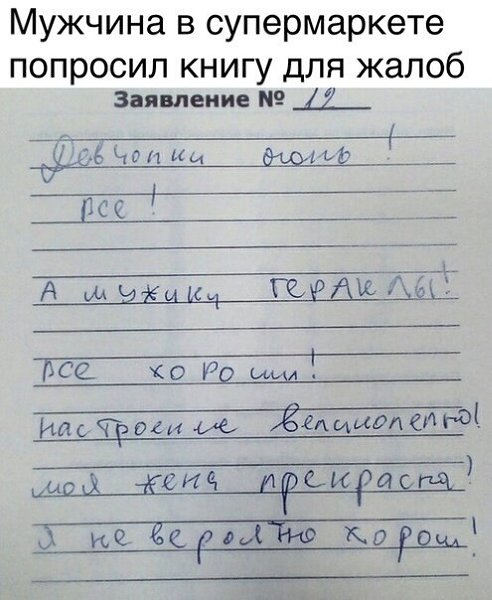 Мужчина в супермаркете
попросил книгу для жалоб
Заявление № 12
Девчонки огонь!
Все!
А мужики ГЕРАКЛЫ!
Все хороши!
Настроение великолепно!
моя жена прекрасна!
Я не вероятно хорош!